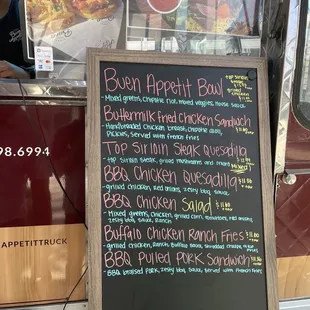 Buen Appetit Bowl
-Mixed greens, chipotle rice, mixed veggies, house sauce
Top Sirloin
Steak
Grilled
Chicken
Buttermilk Fried Chicken Sandwich
-Hand breaded chicken breast, chipotle aioli,
Pickles, Served with french fries
Top Sirloin Steak Quesadilla
-top sirloin steak, grilled mushrooms and onions
BBQ Chicken Quesadilla
-grilled chicken, red onions, zesty bbq, sauce
BBQ Chicken Salad
-Mixed greens, chicken, grilled corn, tomatoes, red onions,
zesty bbq, sauce, Ranch
Buffalo Chicken Ranch Fries
-grilled chicken, Ranch, Buffalo sauce, shredded cheese
BBQ Pulled Pork Sandwich
-BBQ braised pork, zesty bbq, sauce, served with french fries
98.6994
APPETITTRUCK